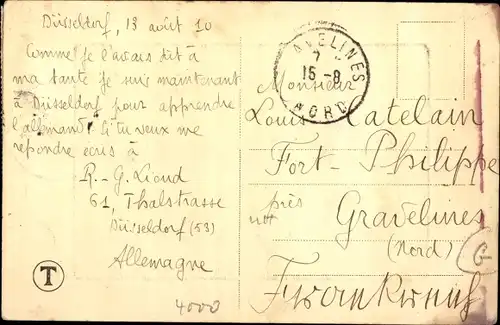 Düsseldorf, 13 août 10
Comme je l'avais dit à
ma tante je suis maintenant
à Düsseldorf pour apprendre
l'allemand si tu veux me
repondre ecris à
R.-G. Lioud
61, Thalstrasse
Düsseldorf (53)
Allemagne
T
4000
GRAVELINES
15-8
NORD
Monsieur
Louis Catelain
Fort-Philippe
près
Gravelines
(Nord)
Frankreich